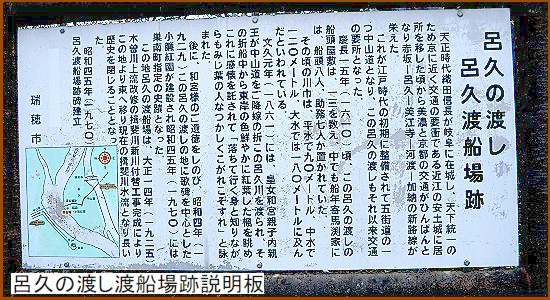 呂久の渡し
呂久渡船場跡
天正時代織田信長が岐阜に在城し、天下統一の
ため京に近く交通の要衝である近江の安土城に居
所を移した頃から美濃と京都の交通がひんぱんと
なり赤坂ー呂久ー美江寺ー河渡ー加納の新路線が
栄えた
これが江戸時代の初期に整備されて五街道の一
つ中山道となり、この呂久の渡しもそれ以来交通
の要所となった。
慶長一五年(一六一〇)頃、この呂久の渡しの
船頭屋敷は、一三を数え、中でも船年寄馬渕家に
は、船頭八人、助務七人が置かれていた。
その頃の川巾は、平水で九〇メートル、中水で
一二〇メートル、大水では一八〇メートルに及ん
だといわれている。
文久元年(一八六一)には、皇女和宮親子内親
王が中山道をご降嫁の折この呂久川を渡られ、そ
の折船中から東岸の色鮮やかに紅葉した楓を眺め
これに感懐を託されて「落ちて行く身と知りなが
らもみじ葉の人なつかしくこがれこそすれ」と詠
まれた。
後に、和宮様のご遺徳をしのび、昭和四年(一
九二九)この呂久の渡しの地に歌碑を中心とした
小簾紅園が建設され昭和四五年(一九七〇)には
巣南町指定の史跡となった
この地呂久の渡船場は、大正一四年(一九二五
)木曽川上流改修の揖斐川新川付替工事完成により
この地より東へ移り現在の揖斐川水流となり長い
歴史を閉じることとなった
昭和四五年(一九七〇)
呂久渡船場跡碑建立
瑞穂市
呂久の渡し渡船場跡説明板